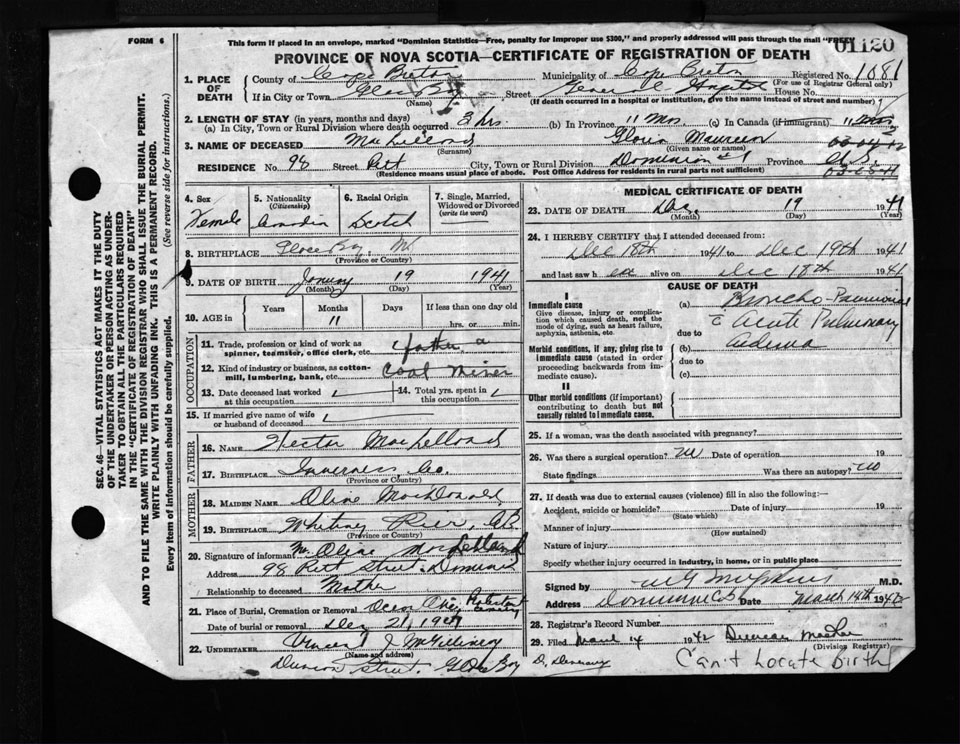 FORM 6
This form if placed in an envelope, marked "Dominion Statistics—Free, penalty for improper use $300," and properly addressed will pass through the mail "FREE"
01120
PROVINCE OF NOVA SCOTIA—CERTIFICATE OF REGISTRATION OF DEATH
1. PLACE OF DEATH
County of Cape Breton Municipality of Cape Breton Registered No. 1081
(For use of Registrar General only)
If in City or Town Glace Bay Street General Hospital House No.
(Name) (If death occurred in a hospital or institution, give the name instead of street and number)
2. LENGTH OF STAY (in years, months and days)
(a) In City, Town or Rural Division where death occurred 3 hrs. (b) In Province 11 Mos. (c) In Canada (if immigrant) 11 Mos
3. NAME OF DECEASED MacLellan Gloria Maureen
(Surname) (Given name or names)
RESIDENCE No. 98 Street Pitt City, Town or Rural Division Dominion #1 Province N.S.
(Residence means usual place of abode. Post Office Address for residents in rural parts not sufficient)
4. Sex
Female
5. Nationality
(Citizenship)
Canadian
6. Racial Origin
Scotch
7. Single, Married, Widowed or Divorced
(write the word)
8. BIRTHPLACE Glace Bay, NS
(Province or Country)
9. DATE OF BIRTH January 19 1941
(Month) (Day) (Year)
10. AGE in
Years Months Days If less than one day old
11
hrs. or min.
OCCUPATION
11. Trade, profession or kind of work as spinner, teamster, office clerk, etc. father a
12. Kind of industry or business, as cotton-mill, lumbering, bank, etc. Coal Miner
13. Date deceased last worked at this occupation
14. Total yrs. spent in this occupation
15. If married give name of wife or husband of deceased
FATHER
16. NAME Hector MacLellan
17. BIRTHPLACE Inverness, Co.
(Province or Country)
MOTHER
18. MAIDEN NAME Olive MacDonald
19. BIRTHPLACE Whitney Pier, C.B.
(Province or Country)
20. Signature of informant Mrs. Olive MacLellan
Address 98 Pitt Street, Dominion
Relationship to deceased Mother
21. Place of Burial, Cremation or Removal Ocean View Protestant Cemetery
Date of burial or removal Dec 21, 1941
22. UNDERTAKER J McGillivray
(Name and address)
Street, Glace Bay
MEDICAL CERTIFICATE OF DEATH
23. DATE OF DEATH Dec. 19 1941
(Month) (Day) (Year)
24. I HEREBY CERTIFY that I attended deceased from:
Dec 18th 1941 to Dec 19th 1941
and last saw h er alive on Dec 18th 1941
CAUSE OF DEATH
I
Immediate cause
Give disease, injury or complication which caused death, not the mode of dying, such as heart failure, asphyxia, asthenia, etc.
(a) Broncho-Pneumonia
c̄ Acute Pulmonary
due to
Morbid conditions, if any, giving rise to immediate cause (stated in order proceeding backwards from immediate cause).
(b) oedema
due to
(c)
II
Other morbid conditions (if important) contributing to death but not causally related to immediate cause.
25. If a woman, was the death associated with pregnancy?
26. Was there a surgical operation? no Date of operation 19
State findings Was there an autopsy? no
27. If death was due to external causes (violence) fill in also the following:—
Accident, suicide or homicide? Date of injury 19
(State which)
Manner of injury
(How sustained)
Nature of injury
Specify whether injury occurred in industry, in home, or in public place
Signed by M.D.
Address Dominion CB Date March 14th 1942
28. Registrar's Record Number
29. Filed March 14 1942 Duncan
(Division Registrar)
Can't Locate birth
SEC. 46—VITAL STATISTICS ACT MAKES IT THE DUTY OF THE UNDERTAKER OR PERSON ACTING AS UNDERTAKER TO OBTAIN ALL THE PARTICULARS REQUIRED IN THE "CERTIFICATE OF REGISTRATION OF DEATH" AND TO FILE THE SAME WITH THE DIVISION REGISTRAR WHO SHALL ISSUE THE BURIAL PERMIT.
WRITE PLAINLY WITH UNFADING INK. THIS IS A PERMANENT RECORD.
Every item of information should be carefully supplied. (See reverse side for instructions.)